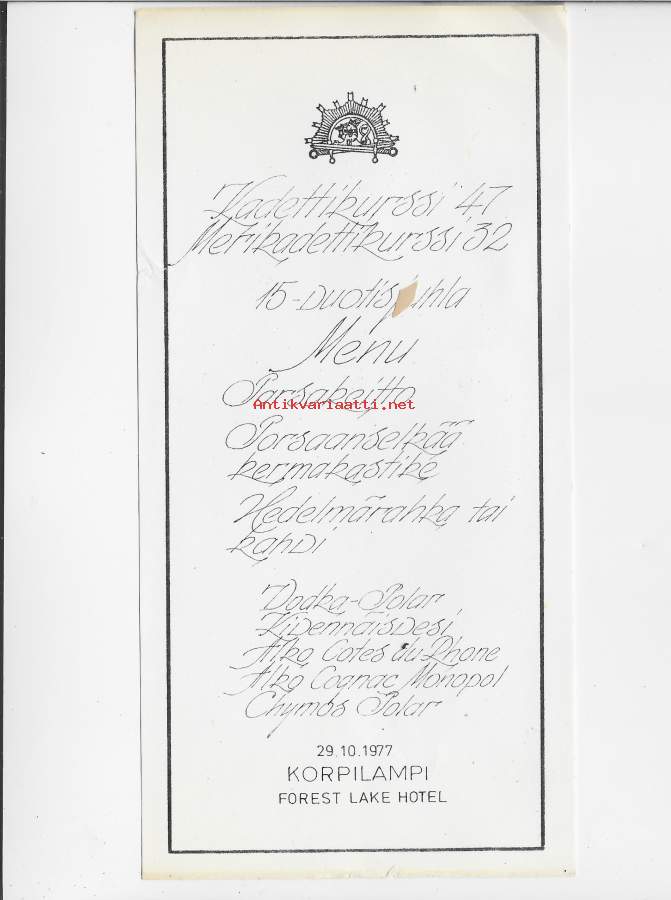 Kadettikurssi 47
Merikadettikurssi 32
15-vuotisjuhla
Menu
Parsakeitto
Antikvariaatti.net
Porsaanselkää
kermakastike
Hedelmärahka tai
kahvi
Vodka-Polar
Kivennäisvesi
Alko Cotes du-Rhone
Alko Cognac Monopol
Chymos Polar
29.10.1977
KORPILAMPI
FOREST LAKE HOTEL